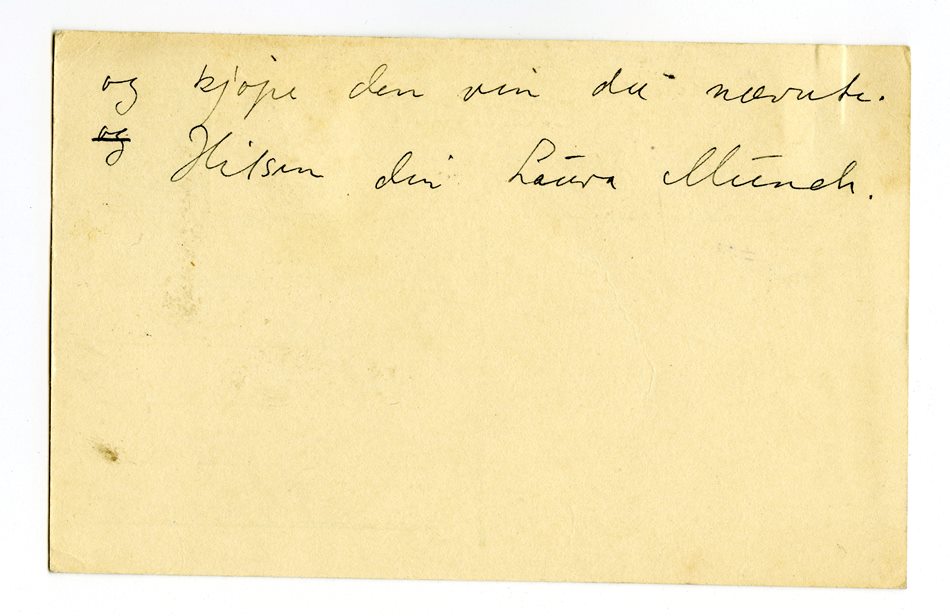 og kjøpe den vin du nævnte.
og Hilsen din Laura Munch.